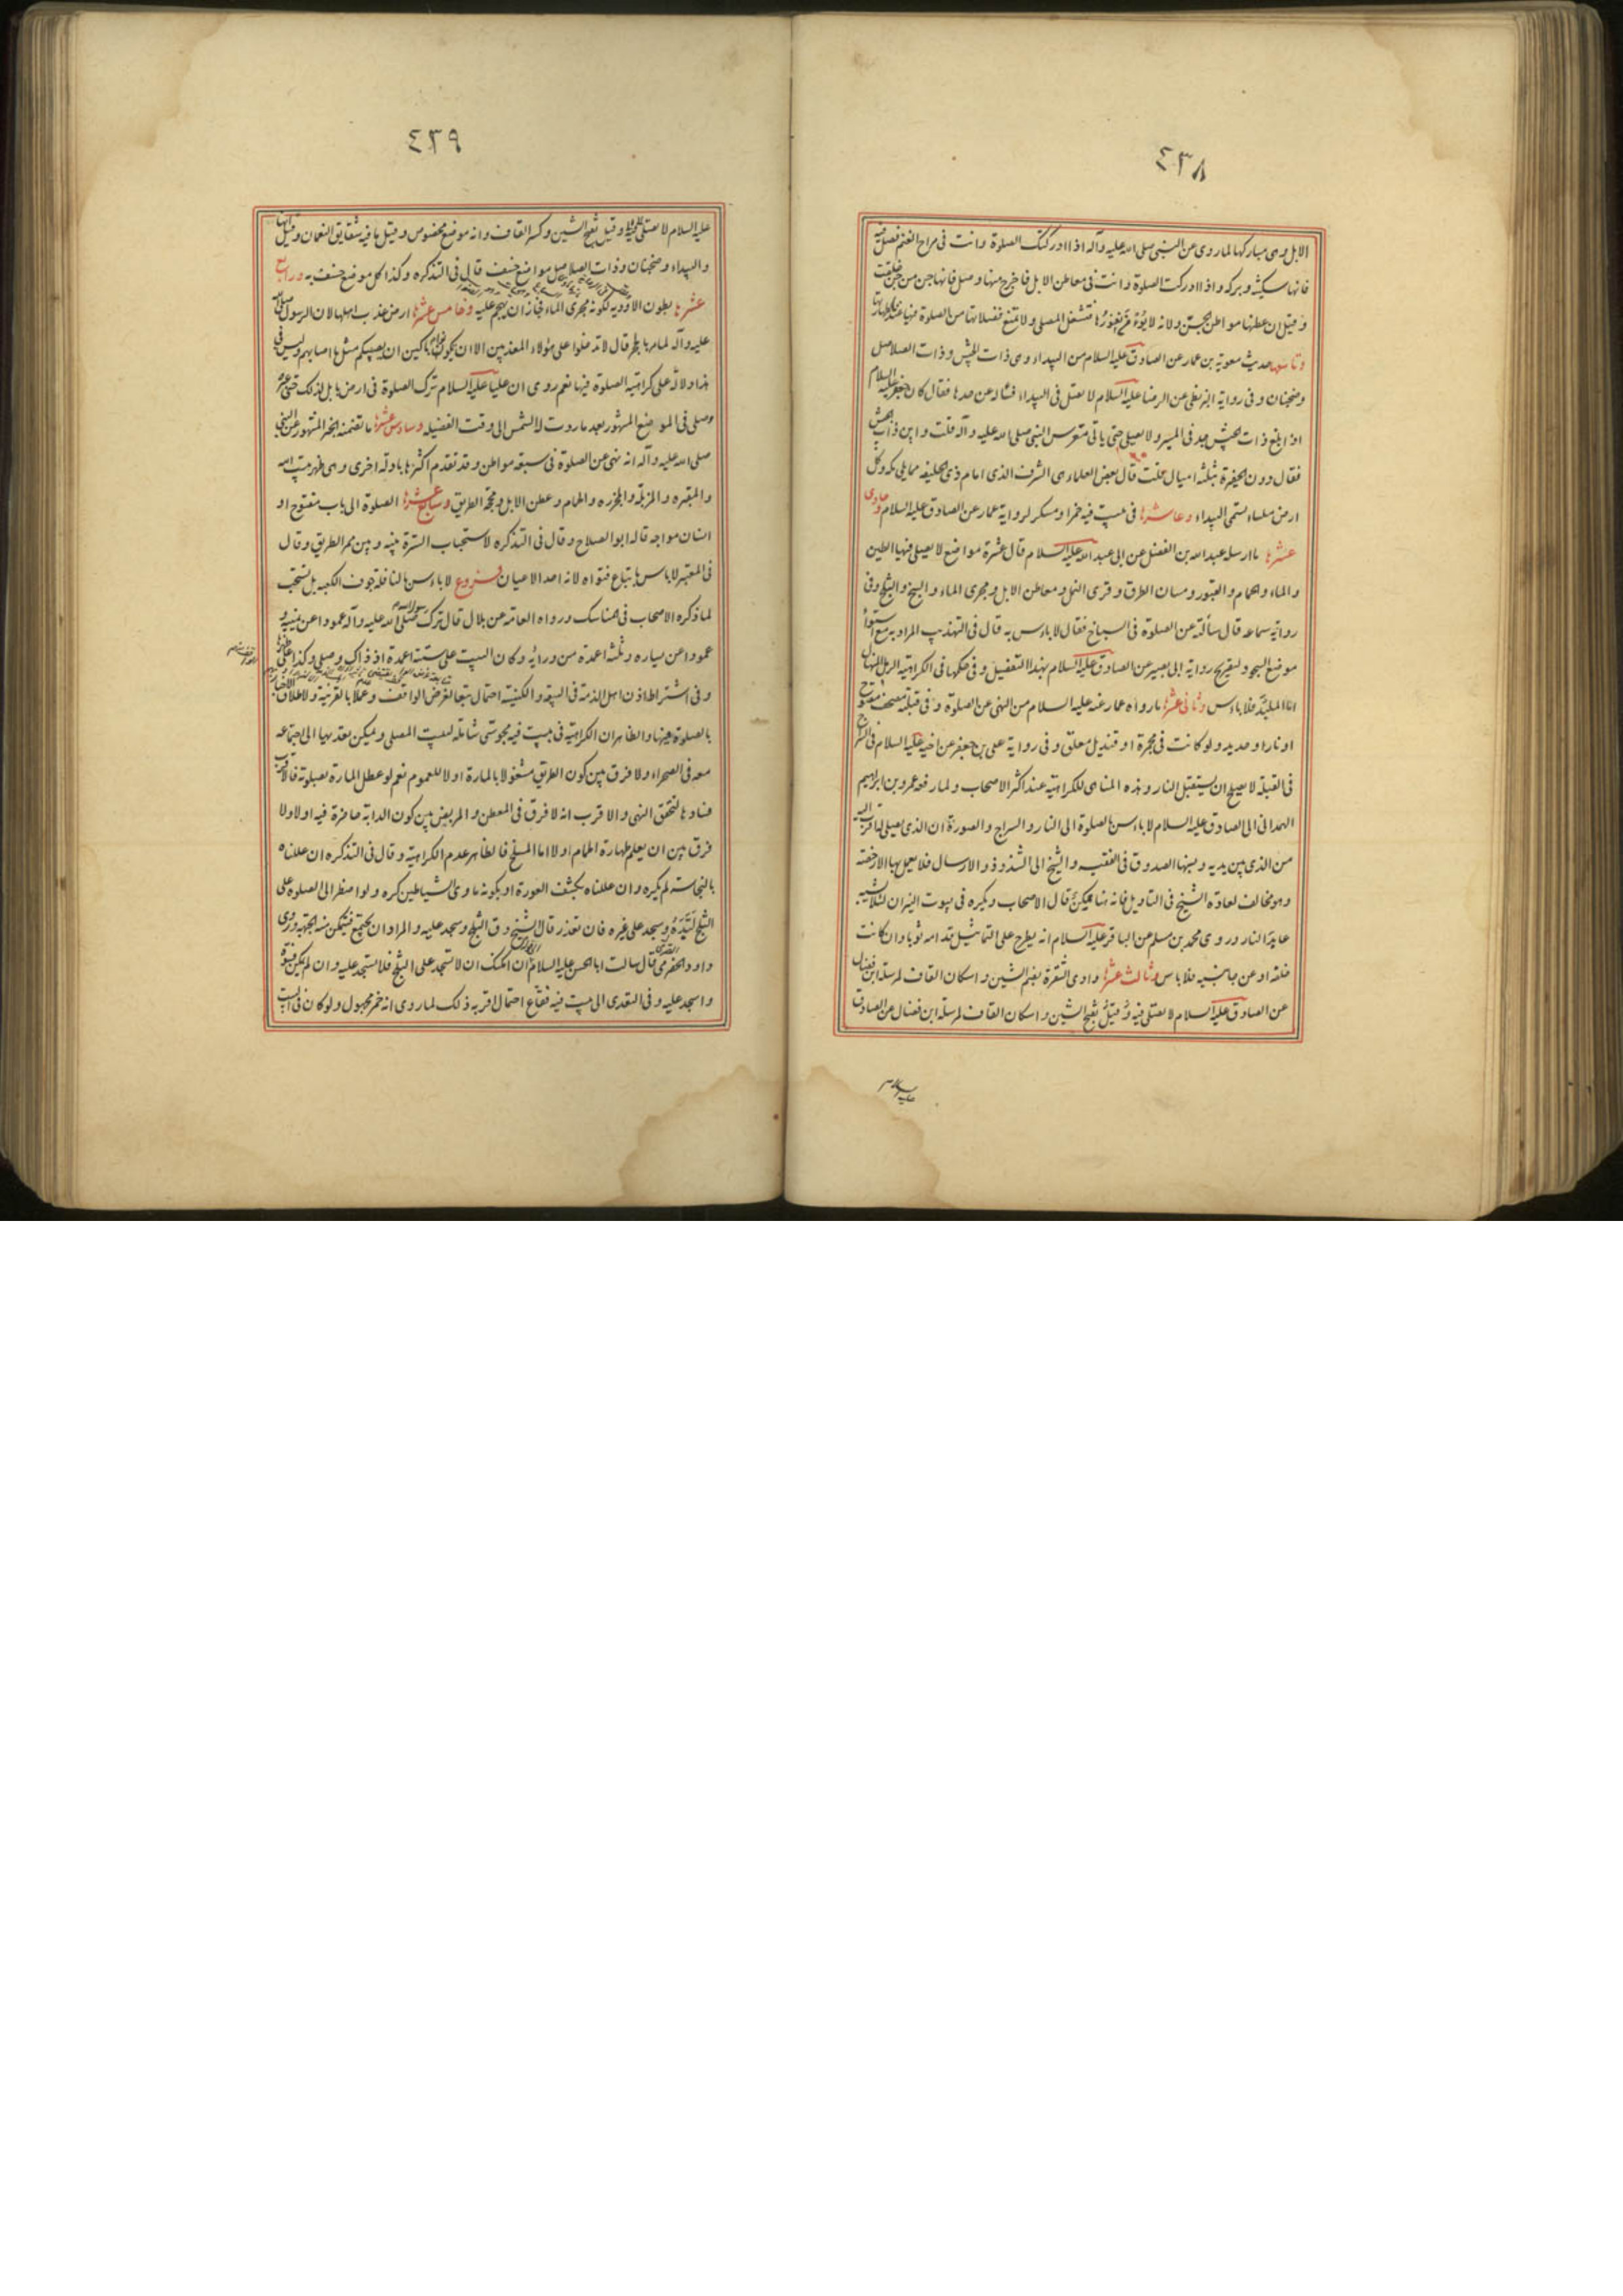 ٤٣٨
الابل وهى مباركها لما روى عن النبى صلى الله عليه وآله اذا ادركتك الصلوة وانت فى مراح الغنم فصل فيه
فانها سكينة وبركه واذا ادركت الصلوة وانت فى معاطن الابل فاخرج منها وصل فانها جن من جن خلقت
وقيل ان عطنها مواطن الجن ولانه لا يؤمن نفورها فتشغل المصلى ولا تمنع فضلاتها من الصلوة فيها عندنا لطهارتها
وتاسعها حديث معوية بن عمار عن الصادق عليه السلام من البيداء وهى ذات الجيش وذات الصلاصل
وضجنان وفى رواية البزنطى عن الرضا عليه السلام لا تصل فى البيداء فساله عن حدها فقال كان جعفر عليه السلام
اذا بلغ ذات الجيش جد فى المسير ولا يصلى حتى ياتى معرس النبى صلى الله عليه وآله قلت واين ذات الجيش
فقال دون الحفيرة بثلثه اميال قلت قال بعض العلماء هى الشرف الذى امام ذى الحليفه مما يلى مكه وكل
ارض ملساء تسمى البيداء وعاشرها فى بيت فيه خمر او مسكر لرواية عمار عن الصادق عليه السلام وحادى
عشرها ما ارسله عبد الله بن الفضل عن ابى عبد الله عليه السلام قال عشرة مواضع لا يصلى فيها الطين
والماء والحمام والقبور ومسان الطرق وقرى النمل ومعاطن الابل ومجرى الماء والسبخ والثلج وفى
رواية سماعه قال سألته عن الصلوة فى السباخ فقال لا باس به قال فى التهذيب المراد به مع استواء
موضع السجود لتصريح رواية ابى بصير عن الصادق عليه السلام بهذا التفصيل وفى حكمها فى الكراهية الرمل المنهال
اما الملبد فلا باس وثانى عشرها ما رواه عمار عنه عليه السلام من النهى عن الصلوة وفى قبلته مصحف مفتوح
او نار او حديد ولو كانت فى مجمرة او قنديل معلق وفى رواية على بن جعفر عن اخيه عليه السلام فى السراج
فى القبلة لا يصلح ان يستقبل النار وهذه المناهى للكراهية عند اكثر الاصحاب ولما رفعه عمرو بن ابراهيم
الهمدانى الى الصادق عليه السلام لا باس بالصلوة الى النار والسراج والصورة ان الذى يصلى له اقرب اليه
من الذى بين يديه ونسبها الصدوق فى الفقيه والشيخ الى الشذوذ والارسال فلا يعمل بها الا رخصة
وهو مخالف لعادة الشيخ فى التاويل فانه هنا ممكن قال الاصحاب ويكره فى بيوت النيران لئلا يشبه
عابد النار وروى محمد بن مسلم عن الباقر عليه السلام انه يطرح على التماثيل قدامه ثوبا وان كانت
خلفه او عن جانبيه فلا باس وثالث عشرها وادى الشقرة بضم الشين واسكان القاف لمرسلة ابن فضال
عن الصادق عليه السلام لا تصلى فيه وقيل بفتح الشين واسكان القاف لمرسلة ابن فضال عن الصادق
عليه السلام
٤٣٩
عليه السلام لا تصلى وقيل بفتح الشين وكسر القاف وانه موضع مخصوص وقيل ما فيه شقايق النعمان وقيل انها
والبيداء وضجنان وذات الصلاصل مواضع خسف قال فى التذكره وكذا كل موضع خسف به ورابع
عشرها بطون الاوديه لكونه مجرى الماء فجاز ان يهجم عليه وخامس عشرها ارض عذب اهلها لان الرسول صلى الله
عليه وآله لما مر بالحجر قال لا تدخلوا على هؤلاء المعذبين الا ان تكونوا باكين ان يصيبكم مثل ما اصابهم وليس فى
هذا دلالة على كراهية الصلوة فيها نعم روى ان عليا عليه السلام ترك الصلوة فى ارض بابل لذلك حتى عبر
وصلى فى الموضع المشهور بعد ما ردت له الشمس الى وقت الفضيله وسادس عشرها ما تضمنه الخبر المشهور عن النبى
صلى الله عليه وآله انه نهى عن الصلوة فى سبعة مواطن وقد تقدم اكثرها بادلة اخرى وهى ظهر بيت الله
والمقبره والمزبلة والمجزره والحمام وعطن الابل ومحجة الطريق وسابع عشرها الصلوة الى باب مفتوح او
انسان مواجه قاله ابو الصلاح وقال فى التذكره لاستحباب السترة بينه وبين ممر الطريق وقال
فى المعتبر لا باس باتباع فتواه لانه احد الاعيان فروع لا باس بالنافلة جوف الكعبه بل تستحب
لما ذكره الاصحاب فى المناسك ورواه العامة عن بلال قال ترك رسول الله صلى الله عليه وآله عمودا عن يمينه و
عمودا عن يساره وثلثة اعمدة من ورائه وكان البيت على ستة اعمدة اذ ذاك وصلى وكذا على
وفى اشتراط اذن اهل الذمة فى البيعة والكنيسة احتمال تبعا لغرض الواقف وعملا بالقرينة ولاطلاق الاخبار
بالصلوة فيها والظاهر ان الكراهية فى بيت فيه مجوسى شاملة لبيت المصلى ويمكن تعديها الى اجتماعه
معه فى الصحراء ولا فرق بين كون الطريق مشغولا بالمارة او لا للعموم نعم لو عطل المارة بصلوته فالاقرب
فسادها لتحقق النهى والاقرب انه لا فرق فى المعطن والمربض بين كون الدابة حاضرة فيه او لا ولا
فرق بين ان يعلم طهارة الحمام او لا اما المسلخ فالظاهر عدم الكراهية وقال فى التذكره ان عللناه
بالنجاسة لم يكره وان عللناه بكشف العورة او بكونه ماوى الشياطين كره ولو اضطر الى الصلوة على
الثلج لبده وسجد على غيره فان تعذر قال الشيخ دق الثلج وسجد عليه والمراد ان يجتمع فتمكن منه الجبهة وروى
داود الصرمى قال سالت ابا الحسن عليه السلام ان امكنك ان لا تسجد على الثلج فلا تسجد عليه وان لم يمكنك فسوه
واسجد عليه وفى التعدى الى بيت فيه فقاع احتمال اقربه ذلك لما روى انه خمر مجهول ولو كان فى البيت